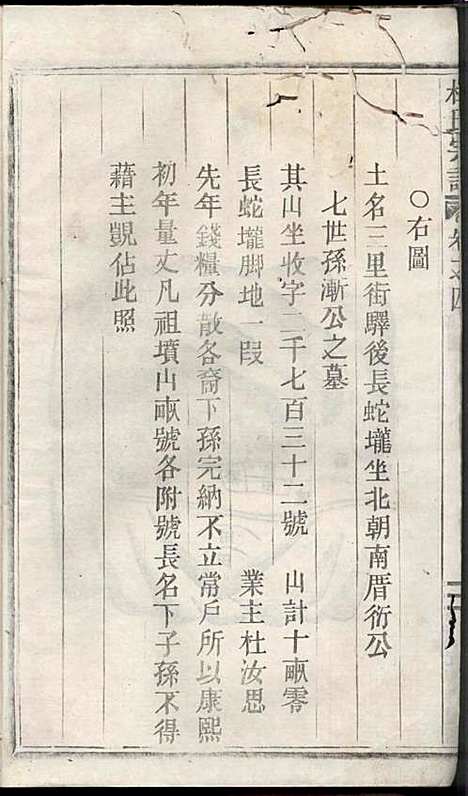 杜氏宗譜 卷之四
○右圖
土名三里街驛後長蛇壠坐北朝南厝衍公
七世孫漸公之墓
其山坐收字二千七百三十二號 山計十畝零
長蛇壠脚地一段 業主杜汝思
先年錢糧分散各裔下孫完納不立常戶所以康熙
初年量丈凡祖墳山畝號各附號長名下子孫不得
藉主覬佔此照